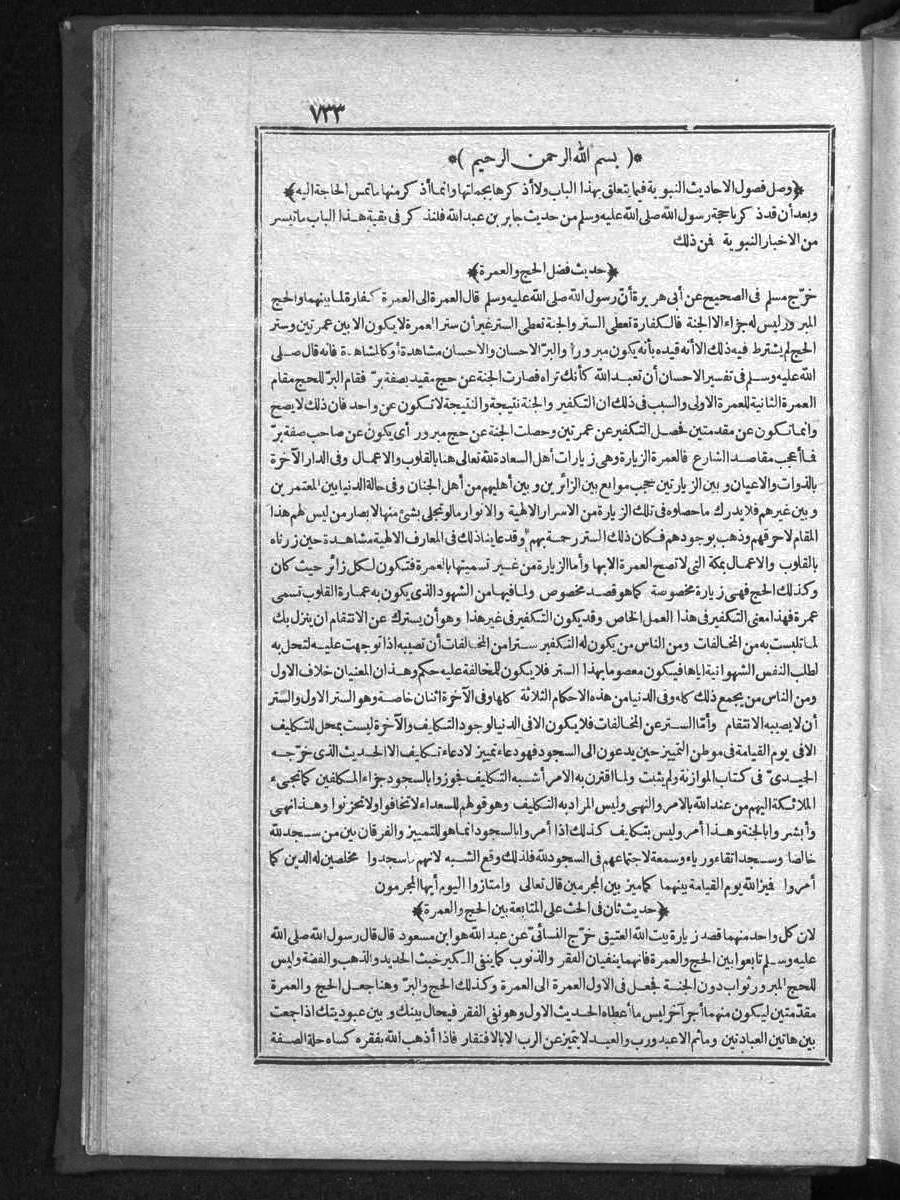 ٧٣٣
*( بسم الله الرحمن الرحيم )*
﴿وصل فصول الاحاديث النبوية فيما يتعلق بهذا الباب ولا أذكرها بجملتها وانما أذكر منها ما تمس الحاجة اليه﴾
وبعد أن قد ذكرنا حجة رسول الله صلى الله عليه وسلم من حديث جابر بن عبد الله فلنذكر فى بقية هذا الباب ما تيسر
من الاخبار النبوية فمن ذلك
﴿حديث فضل الحج والعمرة﴾
خرّج مسلم فى الصحيح عن أبى هريرة أنّ رسول الله صلى الله عليه وسلم قال العمرة الى العمرة كفارة لما بينهما والحج
المبرور ليس له جزاء الا الجنة فالكفارة تعطى الستر والجنة تعطى الستر غير أن ستر العمرة لا يكون الا بين عمرتين وستر
الحج لم يشترط فيه ذلك الا أنه قيده بأنه يكون مبرورا والبرّ الاحسان والاحسان مشاهدة أو كالمشاهدة فانه قال صلى
الله عليه وسلم فى تفسير الاحسان أن تعبد الله كأنك تراه فصارت الجنة عن حج مقيد بصفة برّ فقام البرّ للحج مقام
العمرة الثانية للعمرة الاولى والسبب فى ذلك ان التكفير والجنة نتيجة والنتيجة لا تكون عن واحد فان ذلك لا يصح
وانما تكون عن مقدمتين فحصل التكفير عن عمرتين وحصلت الجنة عن حج مبرور أى يكون عن صاحب صفة برّ
فما أعجب مقاصد الشارع فالعمرة الزيارة وهى زيارات أهل السعادة لله تعالى هنا بالقلوب والاعمال وفى الدار الآخرة
بالذوات والاعيان وبين الزيارتين حجب موانع بين الزائرين وبين أهليهم من أهل الجنان وفى حالة الدنيا بين المعتمرين
وبين غيرهم فلا يدرك ما حصلوه فى تلك الزيارة من الاسرار الالهية والانوار ما لو تجلى بشئ منها لابصار من ليس لهم هذا
المقام لاحرقهم وذهب بوجودهم فكان ذلك الستر رحمة بهم وقد عاينا ذلك فى المعارف الالهية مشاهدة حين زرناه
بالقلوب والاعمال بمكة التى لا تصح العمرة الا بها وأما الزيارة من غير تسميتها بالعمرة فتكون لكل زائر حيث كان
وكذلك الحج فهى زيارة مخصوصة كما هو قصد مخصوص ولما فيها من الشهود الذى يكون به عمارة القلوب تسمى
عمرة فهذا معنى التكفير فى هذا العمل الخاص وقد يكون التكفير فى غير هذا وهو أن يسترك عن الانتقام ان ينزل بك
لما تلبست به من المخالفات ومن الناس من يكون له التكفير سترا من المخالفات أن تصيبه اذا توجهت عليه لتحل به
لطلب النفس الشهوانية اياها فيكون معصوما بهذا الستر فلا يكون للمخالفة عليه حكم وهذان المعنيان خلاف الاول
ومن الناس من يجمع ذلك كله وفى الدنيا من هذه الاحكام الثلاثة كلها وفى الآخرة اثنان خاصة وهو الستر الاول والستر
أن لا يصيبه الانتقام وأمّا الستر عن المخالفات فلا يكون الا فى الدنيا لوجود التكليف والآخرة ليست بمحل للتكليف
الا فى يوم القيامة فى موطن التمييز حين يدعون الى السجود فهو دعاء تمييز لا دعاء تكليف الا الحديث الذى خرّجه
الحميدىّ فى كتاب الموازنة ولم يثبت ولما اقترن به الامر أشبه التكليف فجوزوا بالسجود جزاء المكلفين كما تجىء
الملائكة اليهم من عند الله بالامر والنهى وليس المراد به التكليف وهو قولهم للسعداء لا تخافوا ولا تحزنوا وهذا نهى
وأبشروا بالجنة وهذا أمر وليس بتكليف كذلك اذا أمروا بالسجود انما هو للتمييز والفرقان بين من سجد لله
خالصا وسجد اتقاء ورياء وسمعة لاجتماعهم فى السجود لله فلذلك وقع الشبه لانهم ما سجدوا مخلصين له الدين كما
أمروا فيز الله يوم القيامة بينهما كما ميز بين المجرمين قال تعالى وامتازوا اليوم أيها المجرمون
﴿حديث ثان فى الحث على المتابعة بين الحج والعمرة﴾
لان كل واحد منهما قصد زيارة بيت الله العتيق خرّج النسائىّ عن عبد الله هو ابن مسعود قال قال رسول الله صلى الله
عليه وسلم تابعوا بين الحج والعمرة فانهما ينفيان الفقر والذنوب كما ينفى الكير خبث الحديد والذهب والفضة وليس
للحج المبرور ثواب دون الجنة فجعل فى الاول العمرة الى العمرة وكذلك الحج والبرّ وهنا جعل الحج والعمرة
مقدّمتين ليكون منهما أجر آخر ليس ما أعطاه الحديث الاول وهو نفى الفقر فيحال بينك وبين عبوديتك اذا جمعت
بين هاتين العبادتين وما ثم الا عبد ورب والعبد لا يتميز عن الرب الا بالافتقار فاذا أذهب الله بفقره كساه حلة الصفة